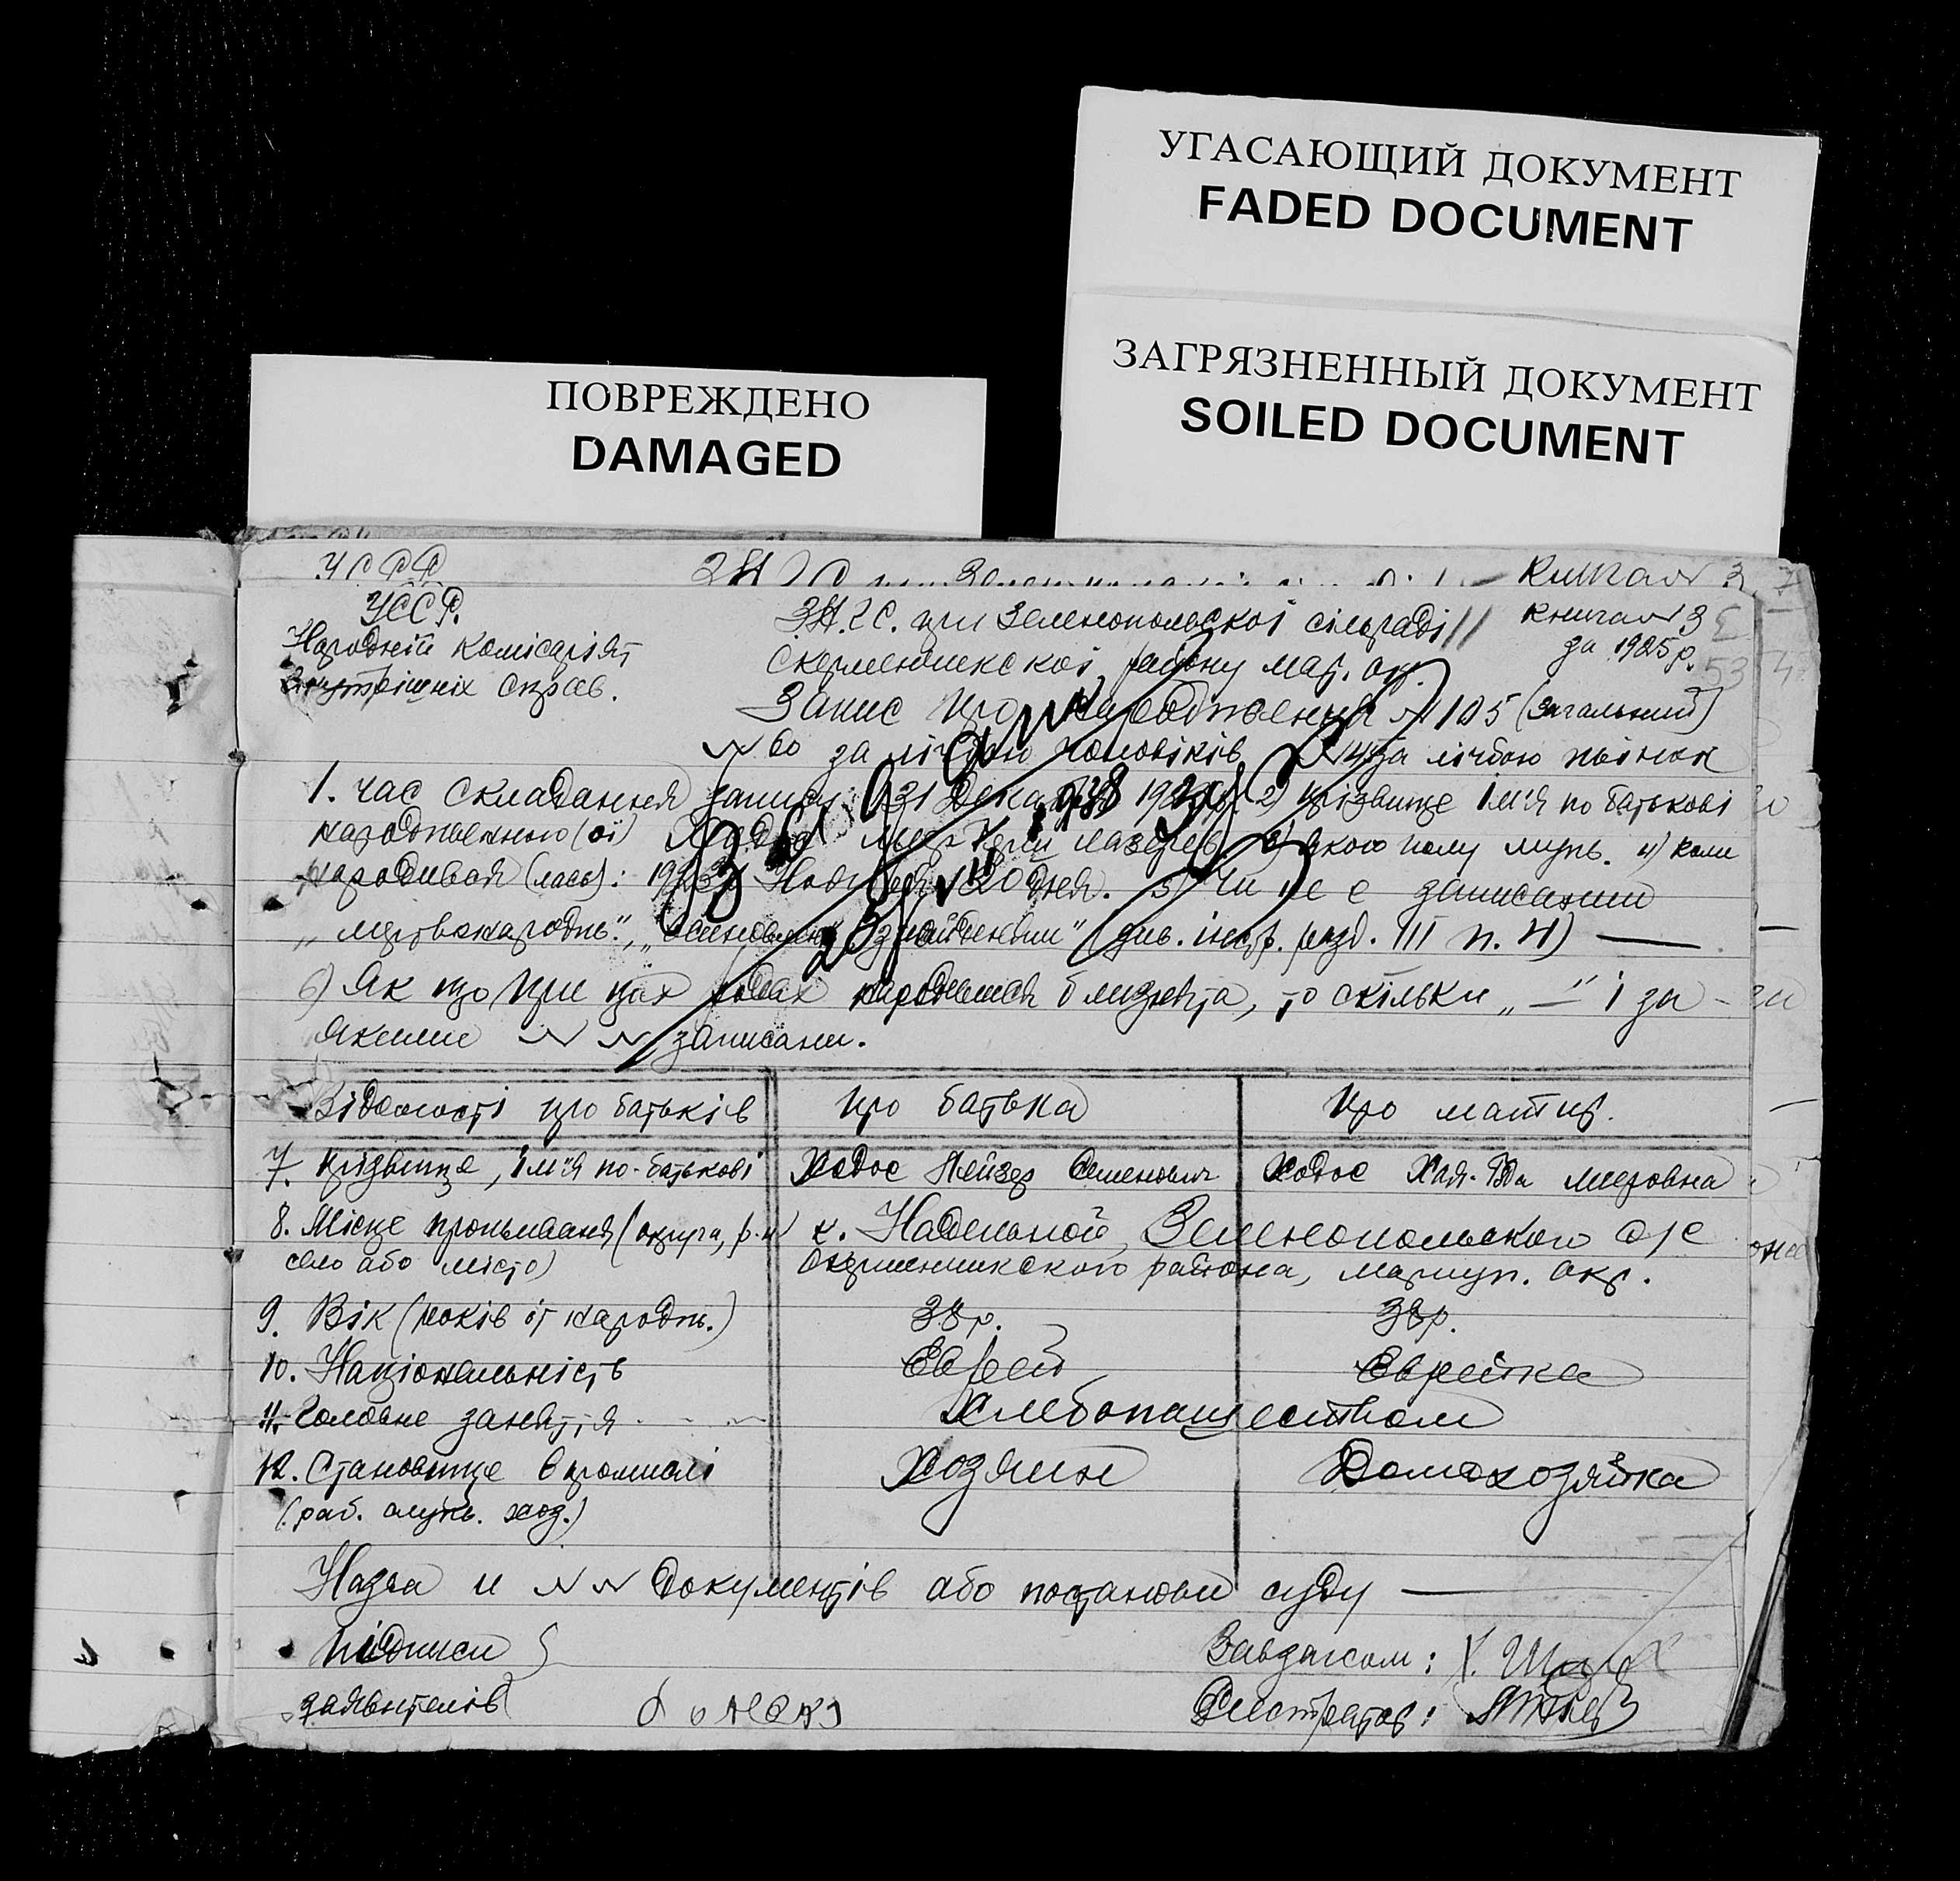 УГАСАЮЩИЙ ДОКУМЕНТ
FADED DOCUMENT
ЗАГРЯЗНЕННЫЙ ДОКУМЕНТ
SOILED DOCUMENT
ПОВРЕЖДЕНО
DAMAGED
УССР
УССР.
Народній комісаріят
Внутрішніх справ.
З.А.Г.С. при Зеленопольскоі сільраді
району мар. окр.
книга № 3
за 1925 р.
53
Запис про народження № 105 (загальний)
№ 60 за лічбою чоловіків за лічбою жінок
1. час складання запису: 31 Декабря 2) прізвище ім'я по батькові
народженного (оі) 3) якого полу муж. 4) коли
народився (лась): 20 дня. 5) Чи не є записаний
„мертвонародж.", (див. інстр. розд. III п. 4) —
6) Як що при цих родах народилися близнята, то скільки „—" і за
якими № № записани.
Відомості про батьків
про батька
про матир.
7. прізвище, ім'я по-батькові
Ходос Лейзер Семенович
Ходос Хая-Меровна
8. Місце проживаня (округа, р-н
село або місто)
к. Надельной, Зеленопольского с/с
района, Мариуп. окр.
9. Вік (років от народж.)
38 р.
10. Національність
Еврей
Еврейка
11. Головне заняття
Хлебопашеством
12. Становище в промислі
(раб. служ. хоз.)
Хозяин
Домохозяйка
Назва и № № документів або постанови суду —
підписи
заявителів
Завзагсом:
Реєстратор: